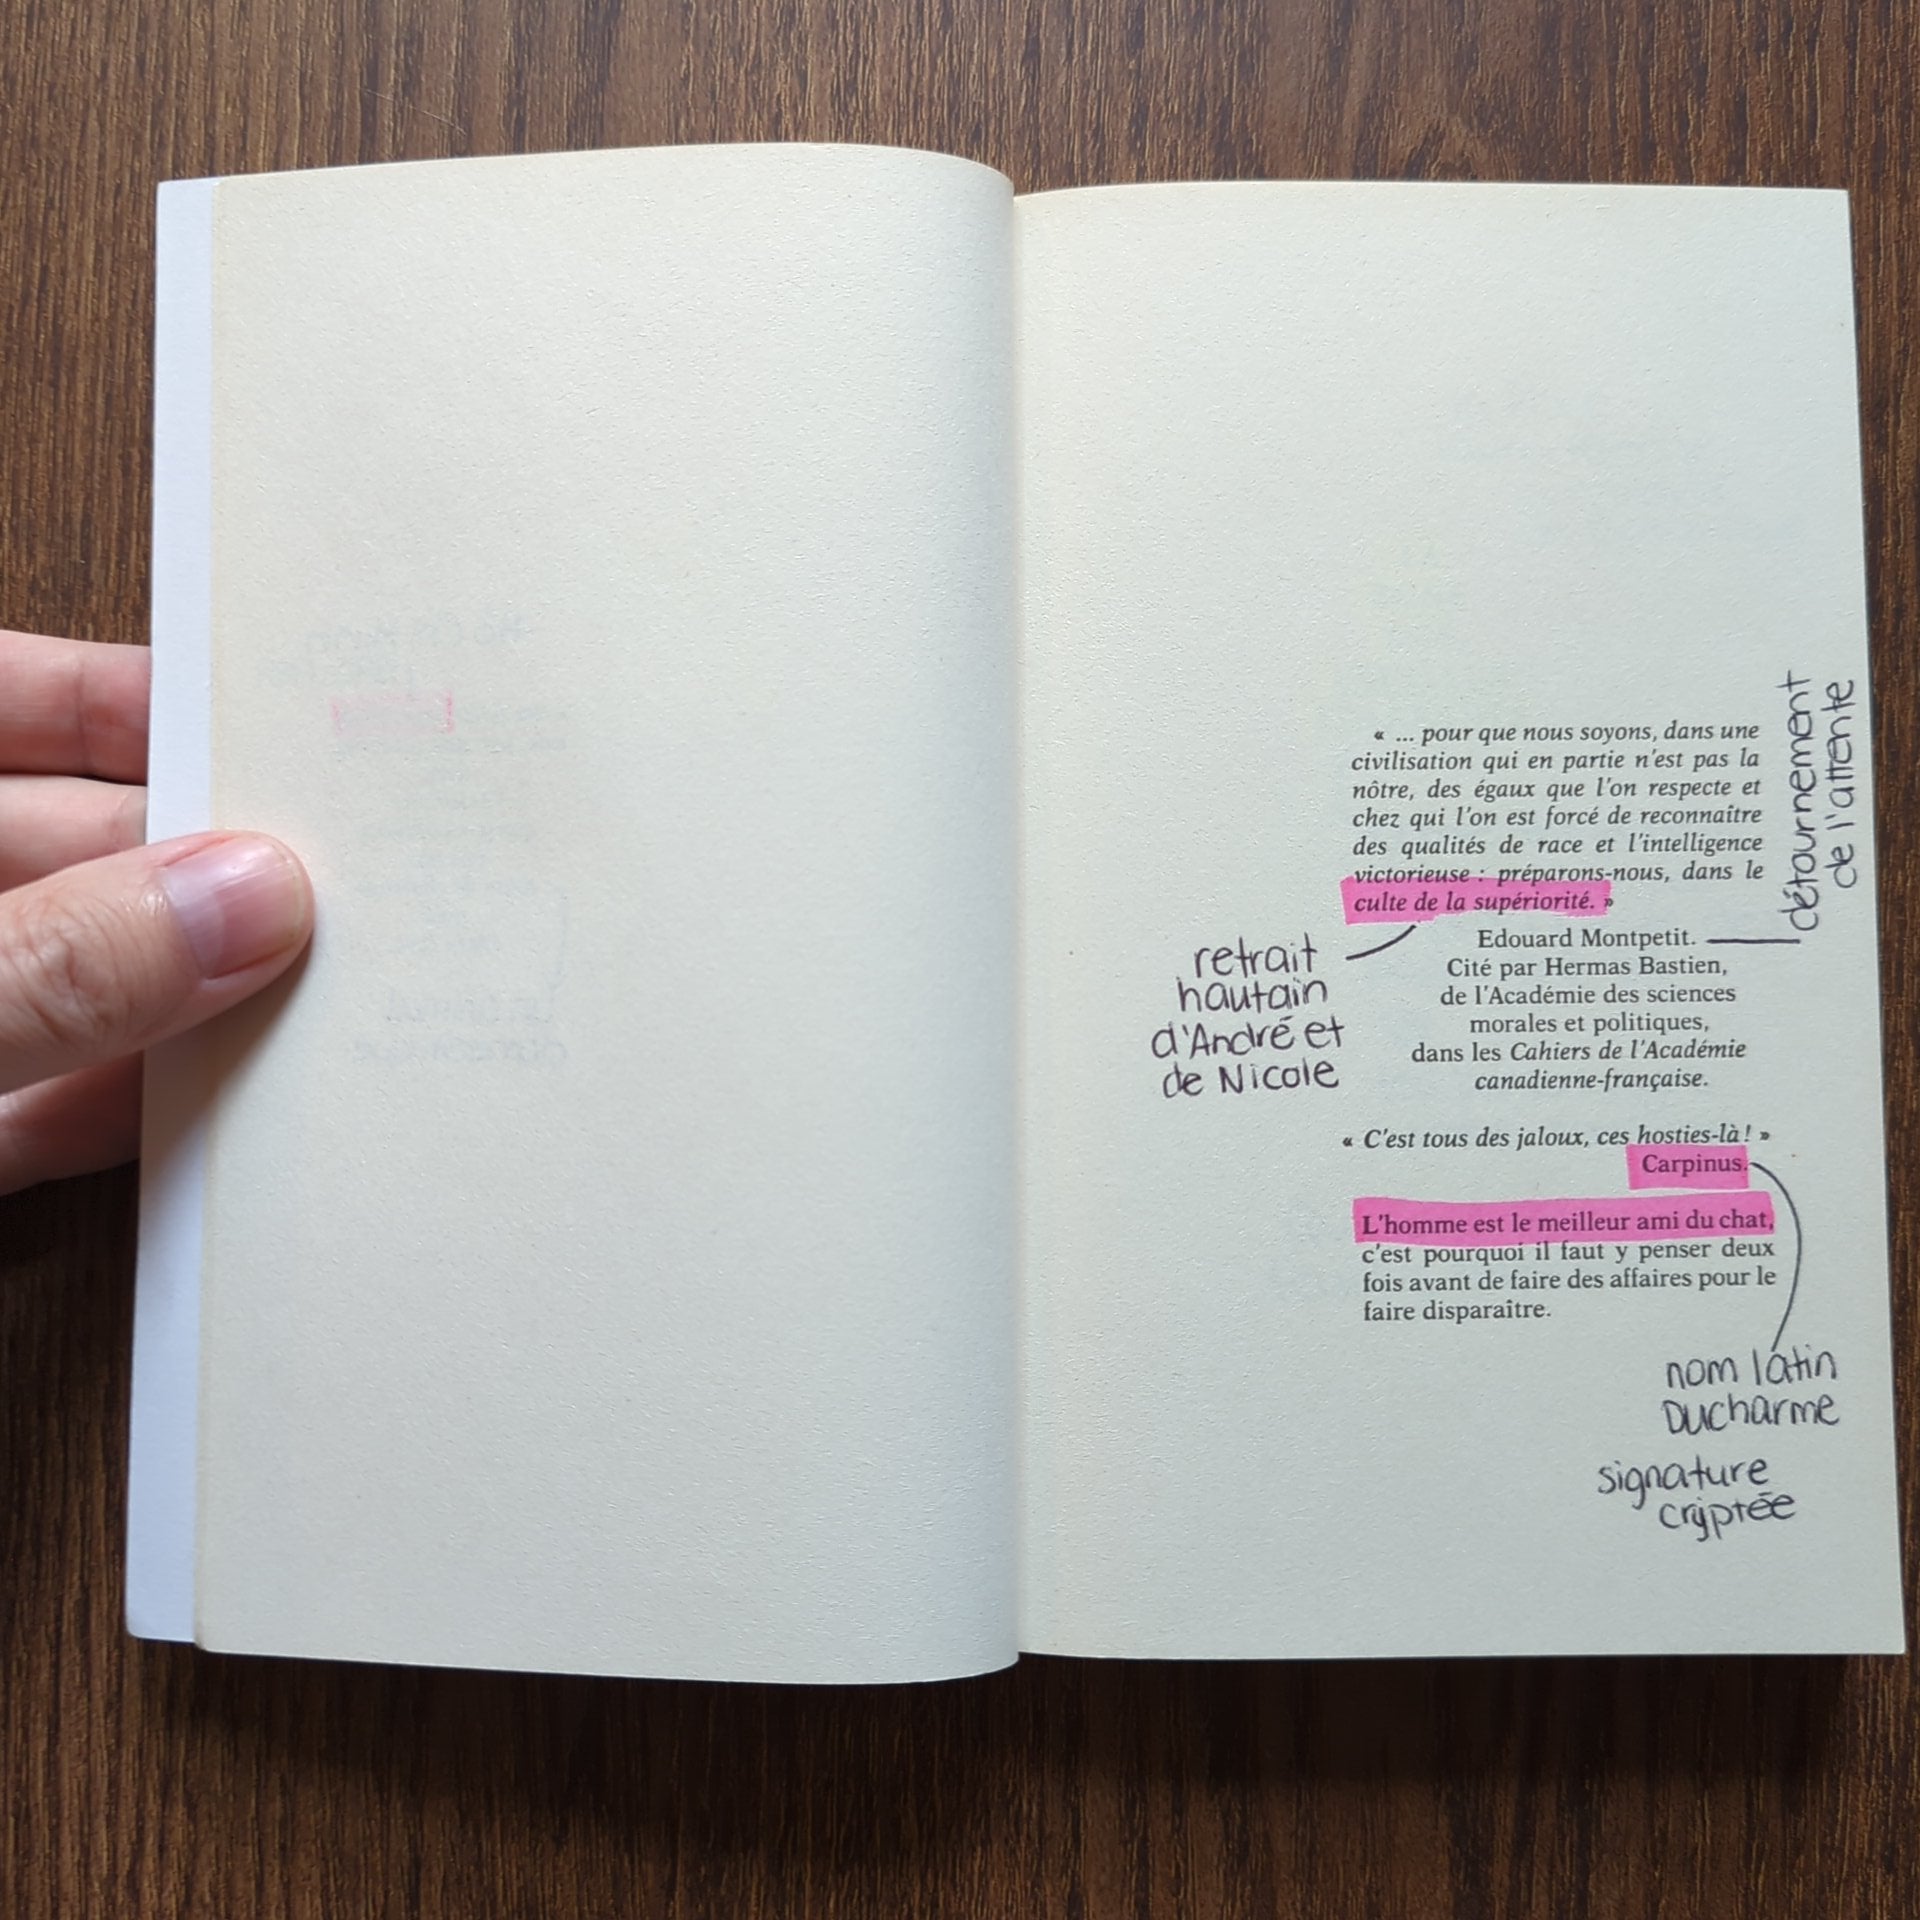 « ... pour que nous soyons, dans une
civilisation qui en partie n'est pas la
nôtre, des égaux que l'on respecte et
chez qui l'on est forcé de reconnaître
des qualités de race et l'intelligence
victorieuse : préparons-nous, dans le
culte de la supériorité. »
Edouard Montpetit.
Cité par Hermas Bastien,
de l'Académie des sciences
morales et politiques,
dans les Cahiers de l'Académie
canadienne-française.
détournement
de l'attente
retrait
hautain
d'André et
de Nicole
« C'est tous des jaloux, ces hosties-là ! »
Carpinus.
L'homme est le meilleur ami du chat,
c'est pourquoi il faut y penser deux
fois avant de faire des affaires pour le
faire disparaître.
nom latin
Ducharme
signature
cryptée